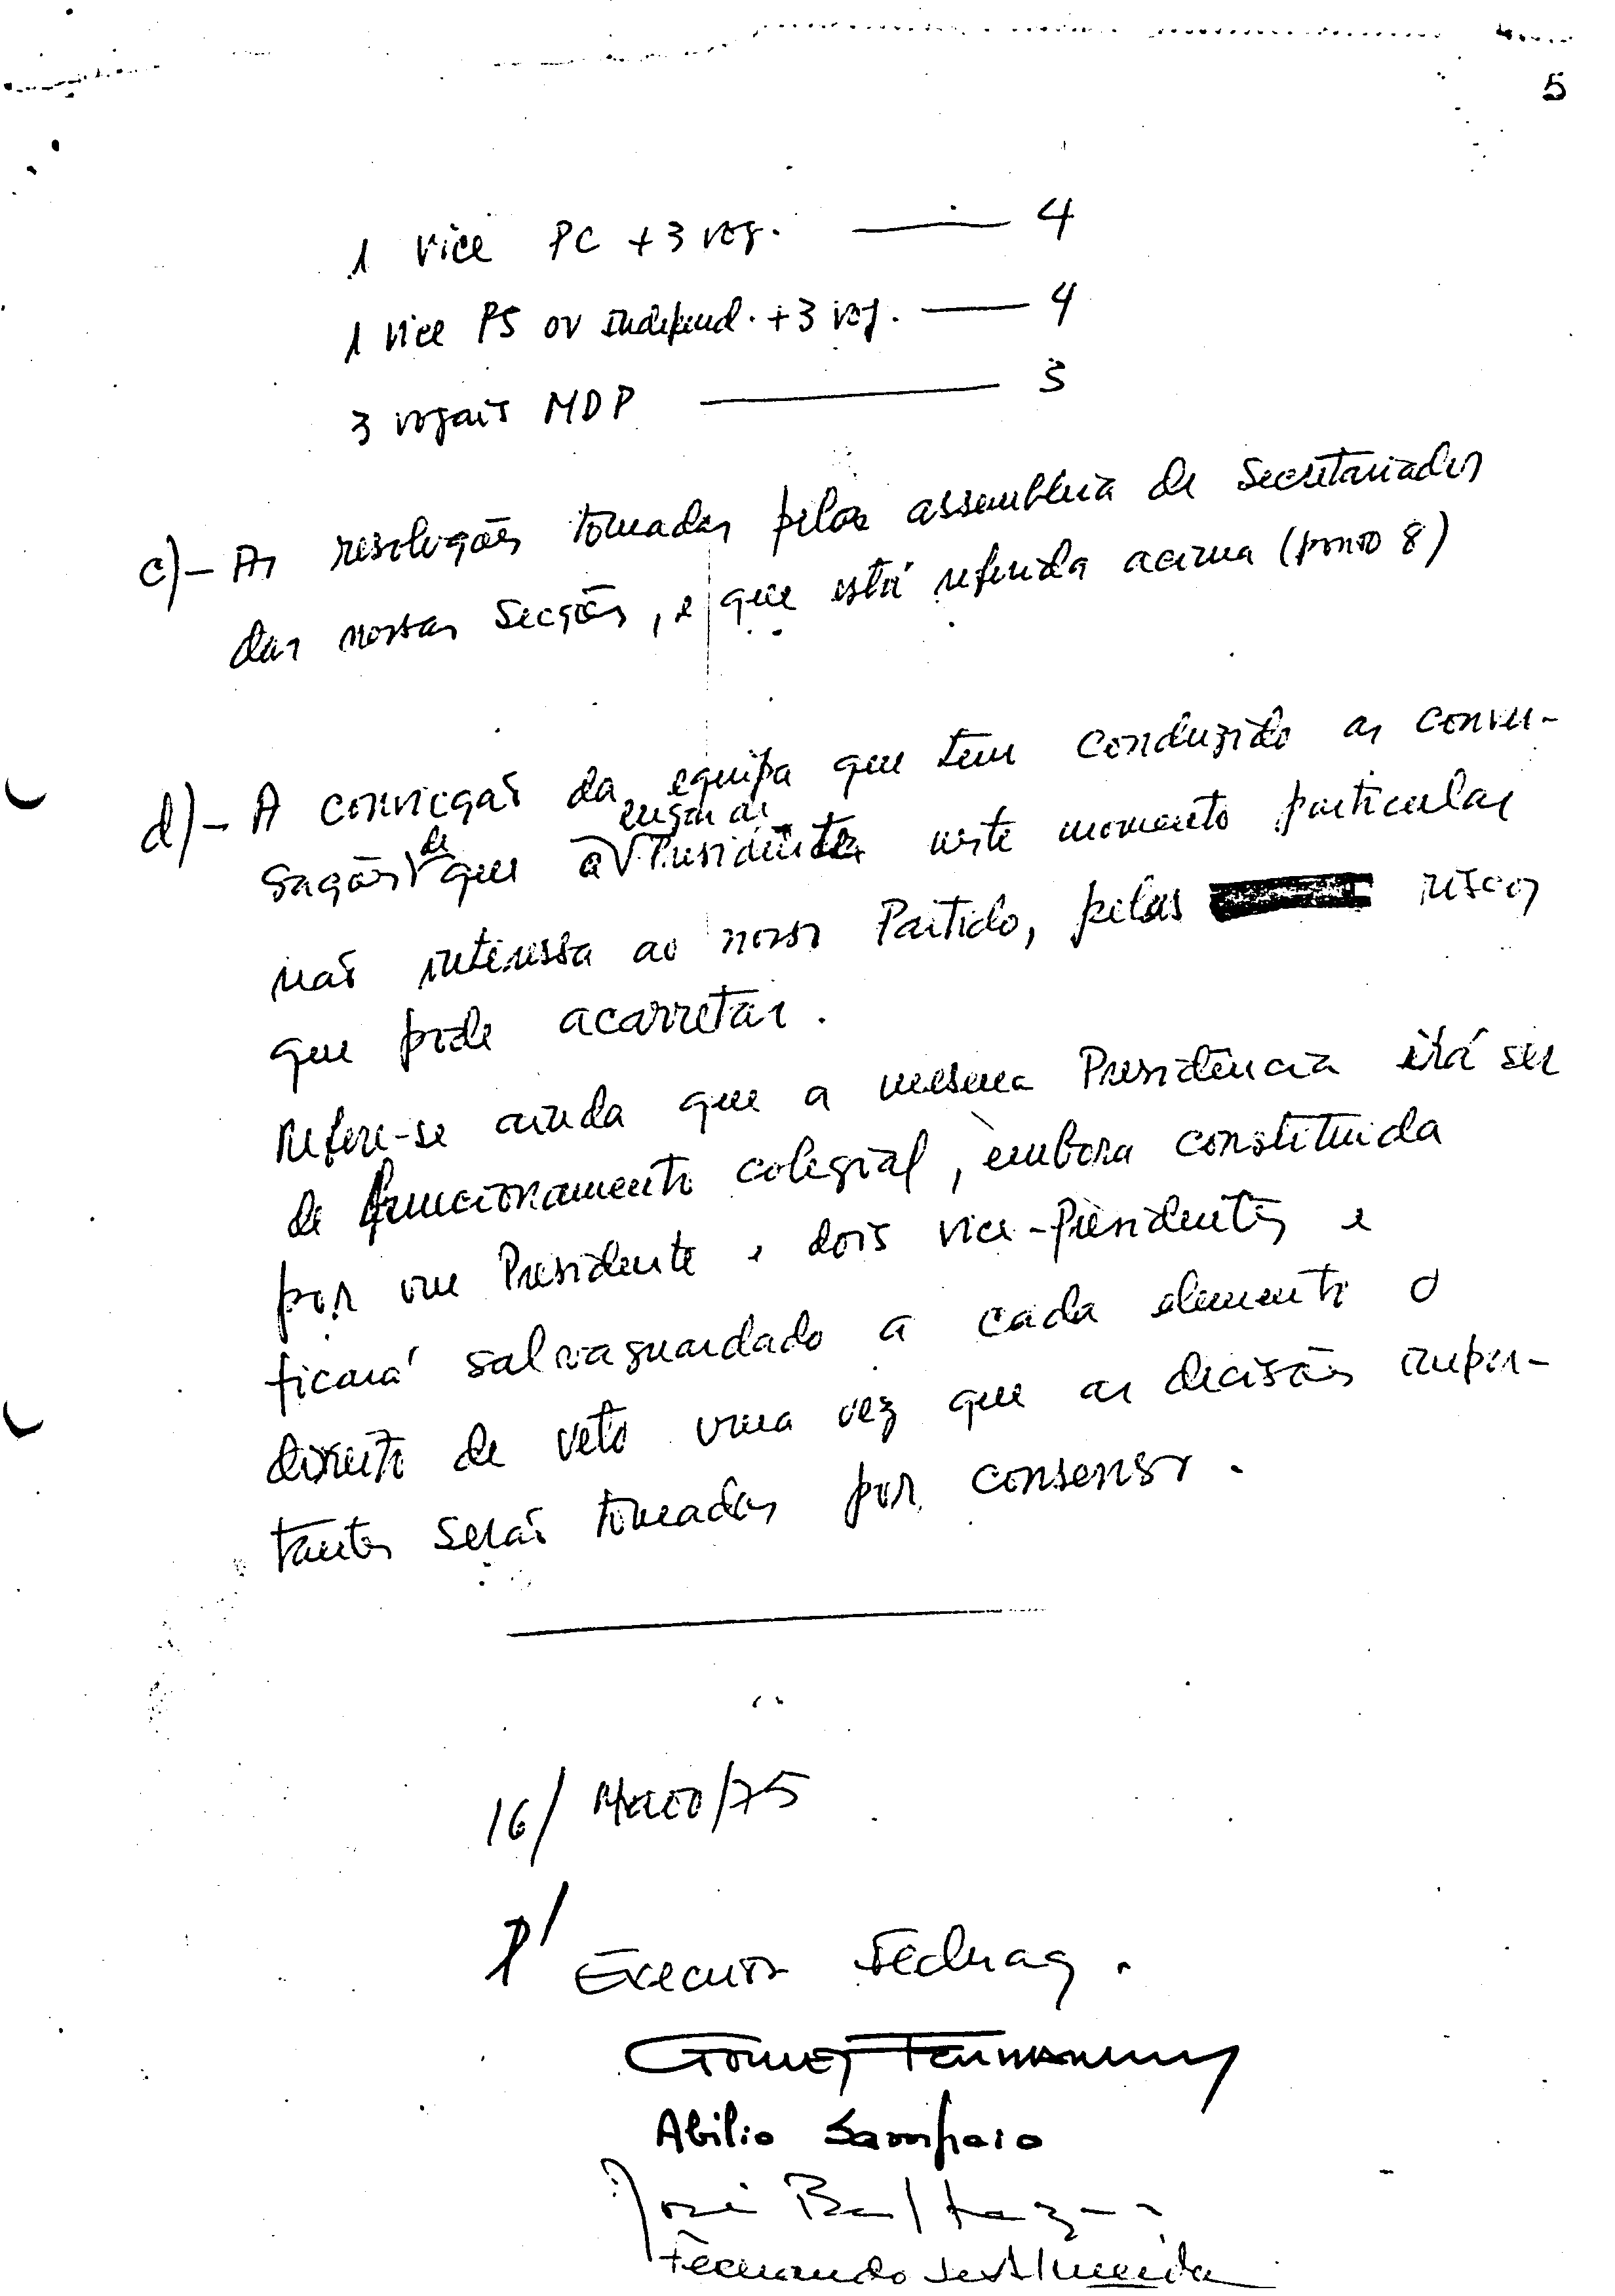 5
1 vice PC + 3 vog. —— 4
1 vice PS ou independ. + 3 vog. —— 4
3 vogais MDP —— 3
c) - As resoluções tomadas pela assembleia de Secretariados
das nossas Secções, e que está referida acima (ponto 8)
d) - A convicção da equipa que tem conduzido as conver-
sações de que o cargo de Presidente neste momento particular
não interessa ao nosso Partido, pelos riscos
que pode acarretar.
Refere-se ainda que a mesma Presidência irá ser
de funcionamento colegial, embora constituida
por um Presidente e dois vice-Presidentes e
ficará salvaguardado a cada elemento o
direito de veto uma vez que as decisões impor-
tantes serão tomadas por consenso.
16/Maio/75
P/ Executivo Fed.
Gomes Fernandes
Abilio Sampaio
José Baltazar
Fernando de Almeida